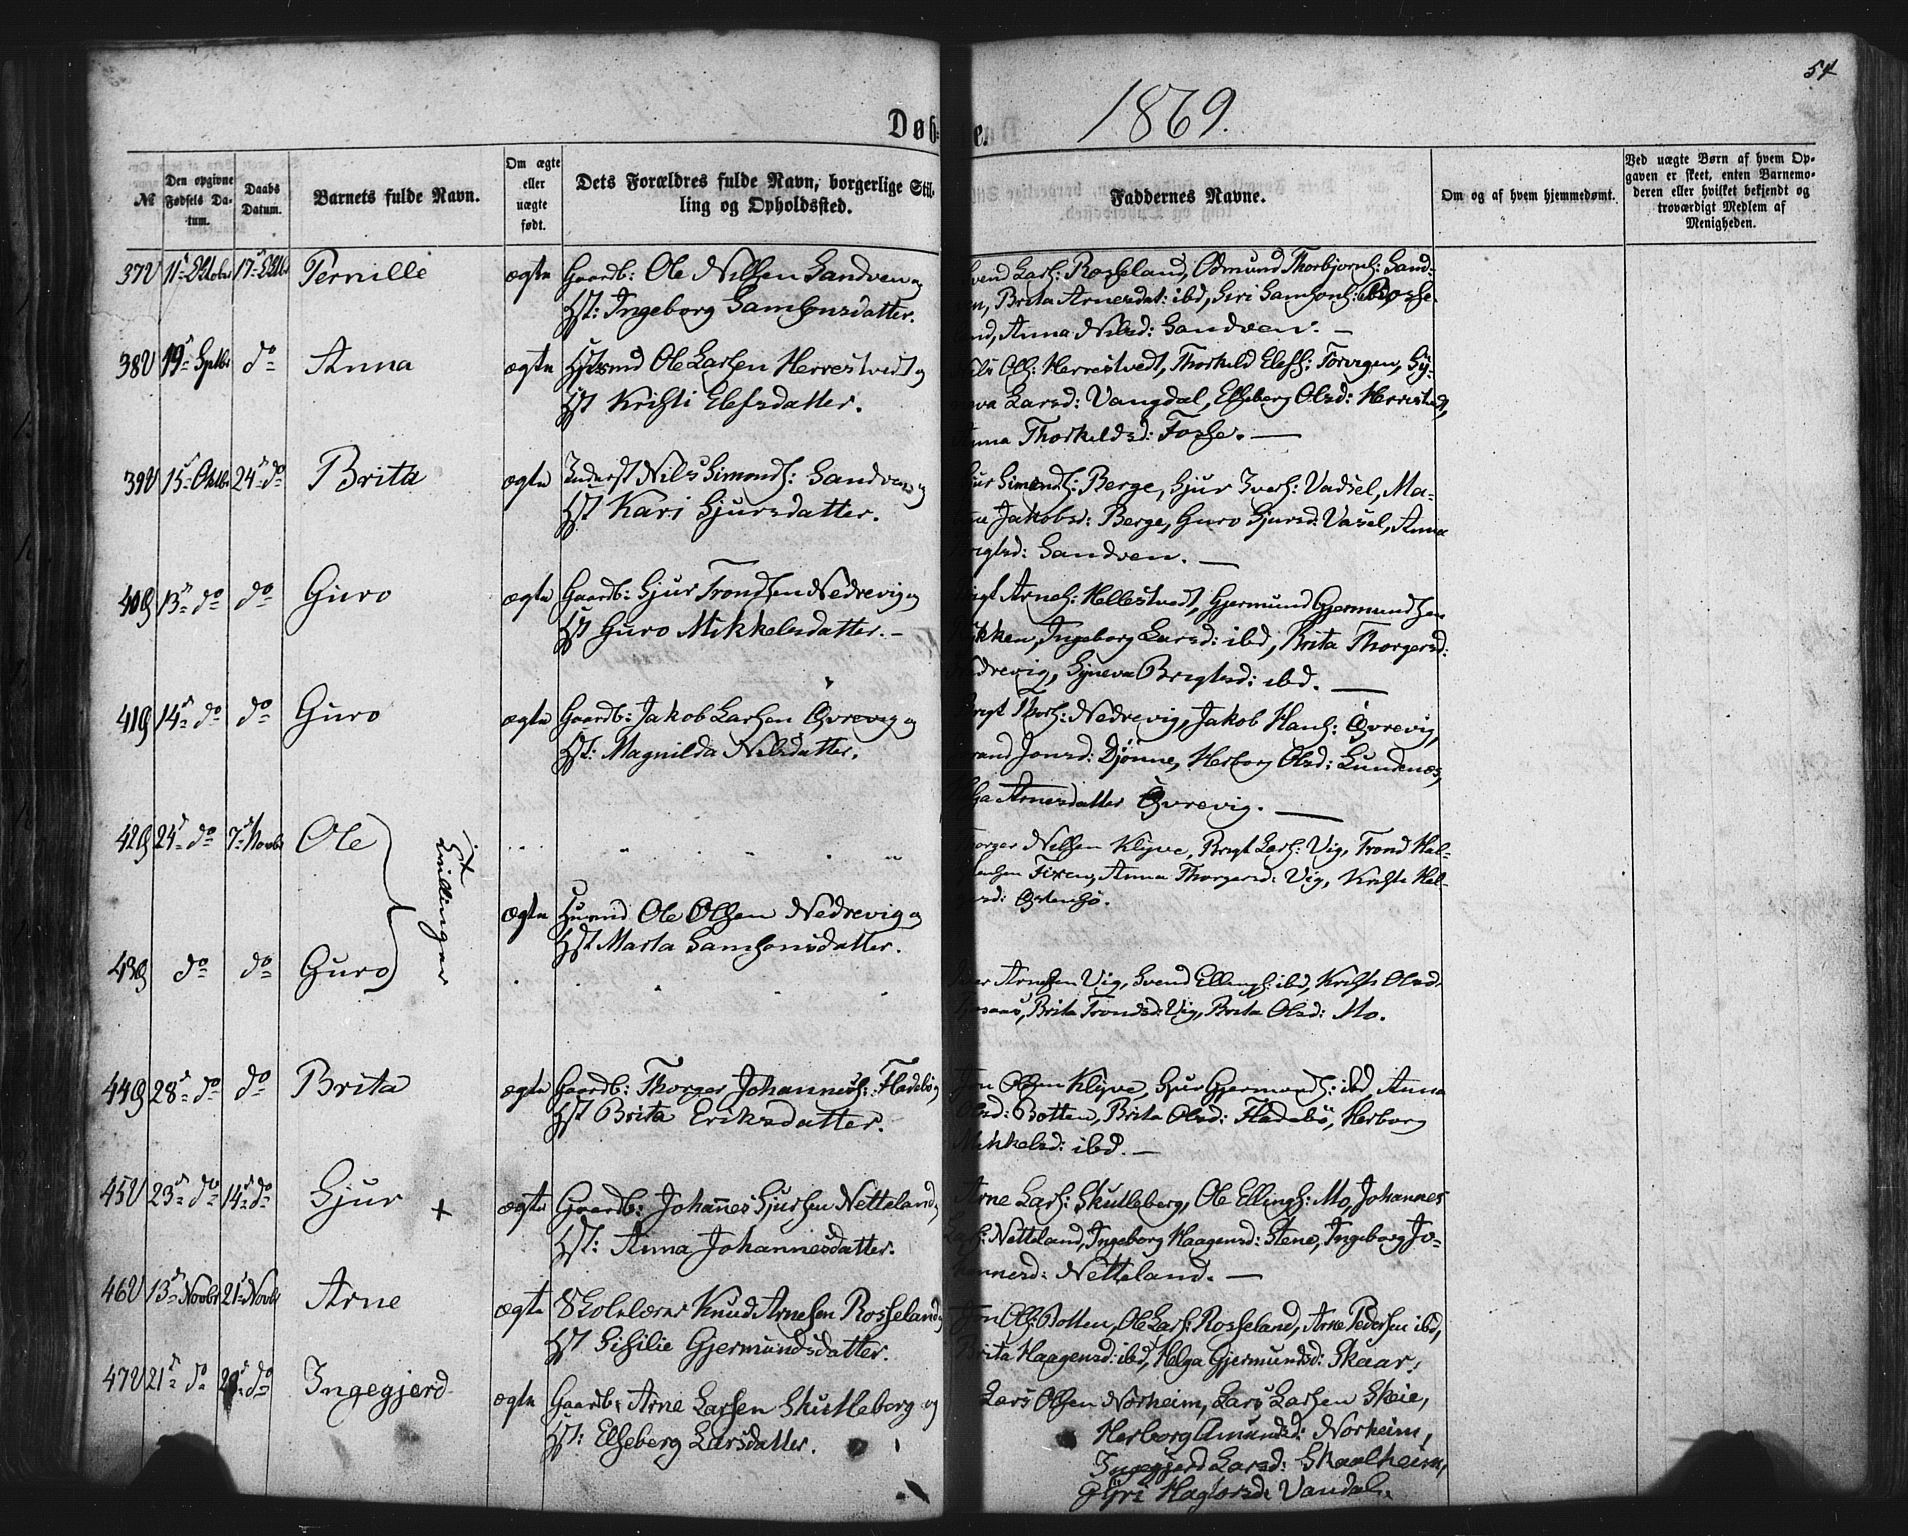 54
1869.
Døb= te.
№ | Den opgivne Fødsels Da-tum. | Daabs Datum. | Barnets fulde Navn. | Om ægte eller uægte født. | Dets Forældres fulde Navn, borgerlige Stil-ling og Opholdssted. | Faddernes Navne. | Om og af hvem hjemmedømt. | Ved uægte Børn af hvem Op-gaven er skeet, enten Barnemo-deren eller hvilket bekjendt og troværdigt Medlem af Menigheden.
37 | 11te Oktober | 17de Oktbr | Pernille | ægte | Gaardb: Ole Nilssen Sandven og
Hst: Ingeborg Samsonsdatter.
Svend Larss: Rosseland, Odmund Thorbjørns: Sand-
ven, Brita Arnesdat: ibd, Siri Samsons: Rosse-
land, Anna Nilsd: Sandven. —
38 | 19de Sptbr | do | Anna | ægte | Husmd Ole Larsen Herrestvedt og
Hst Kristi Elefsdatter.
Nils Ols: Herrestvedt, Thorkild Elefs: Torvigen, Sy-
neva Larsd: Vangdal, Elseberg Olsd: Herrestvedt,
Anna Thorkildsd: Fosse. —
39 | 15de Oktbr | 24de do | Brita | ægte | Inderst Nils Simonds: Sandven og
Hst Kari Sjursdatter.
Sjur Simends: Berge, Sjur Ivers: Vadsel,
Jakobsd: Berge, Guro Sjursd: Vasel, Anna
Brigtsd: Sandven. —
40 | 13de do | do | Guro | ægte | Gaardb: Sjur Trondsen Nedrevig og
Hst Guro Mikkelsdatter. —
Brigt Arnes: Hellestvedt, Gjermund Gjermundsen
Ingeborg Larsd: ibd, Brita Thorgersd:
Nedrevig, Syneva Brigtsd: ibd. —
41 | 14de do | do | Guro | ægte | Gaardb: Jakob Larsen Øvrevig og
Hst: Magnilda Nilsdatter.
Brigt Thors: Nedrevig, Jakob Hans: Øvrevig,
Jonsd: Djønne, Herborg Olsd: Lundenæs,
Arnesdatter Øvrevig. —
42 | 24de do | 7de Novbr | Ole
Tvillinger
Thorger Nilssen Klyve, Brigt Lars: Vig, Trond Hal-
Fixen, Anna Thorgersd: Vig, Kristi Hel-
gesd: Østensø.
ægte | Husmd Ole Olsen Nedrevig og
Hst Marta Samsonsdatter.
43 | do | do | Guro
Iver Arnesen Vig, Svend Ellings: ibd, Kristi Olsd:
Brita Trondsd: Vig, Brita Olsd: Mo.
44 | 28de do | do | Brita | ægte | Gaardb: Thorger Johanness: Fladebø og
Hst Brita Eriksdatter.
Jon Olsen Klyve, Sjur Gjermunds: ibd, Anna
Olsd: Botten, Brita Olsd: Fladebø, Herborg
Mikkelsd: ibd. —
45 | 23de do | 14de do | Sjur + | ægte | Gaardb: Johannes Sjursen Netteland og
Hst: Anna Johannesdatter.
Arne Lars: Skutleberg, Ole Ellings: Mo, Johannes
Lars: Netteland, Ingeborg Haagensd: Stene, Ingeborg Jo-
hannesd: Netteland. —
46 | 13de Novbr | 21de Novbr | Arne | ægte | Skolelærer Knud Arnesen Rosseland og
Hst Sissilie Gjermundsdatter.
Jon Ols: Botten, Ole Lars: Rosseland, Arne Pedersen ibd,
Brita Haagensd: ibd, Helga Gjermundsd: Skaar.
47 | 21de do | 28de do | Ingegjerd | ægte | Gaardb: Arne Larsen Skutleberg og
Hst: Elseberg Larsdatter.
Lars Olsen Norheim, Lars Larsen Skeie,
Herborg Amundsd: Norheim,
Ingegjerd Larsd: Skaalheim,
Gyri Haktorsd: Vandal.